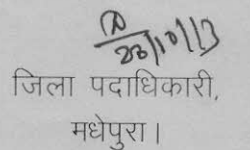 23/10/13
जिला पदाधिकारी,
मधेपुरा।